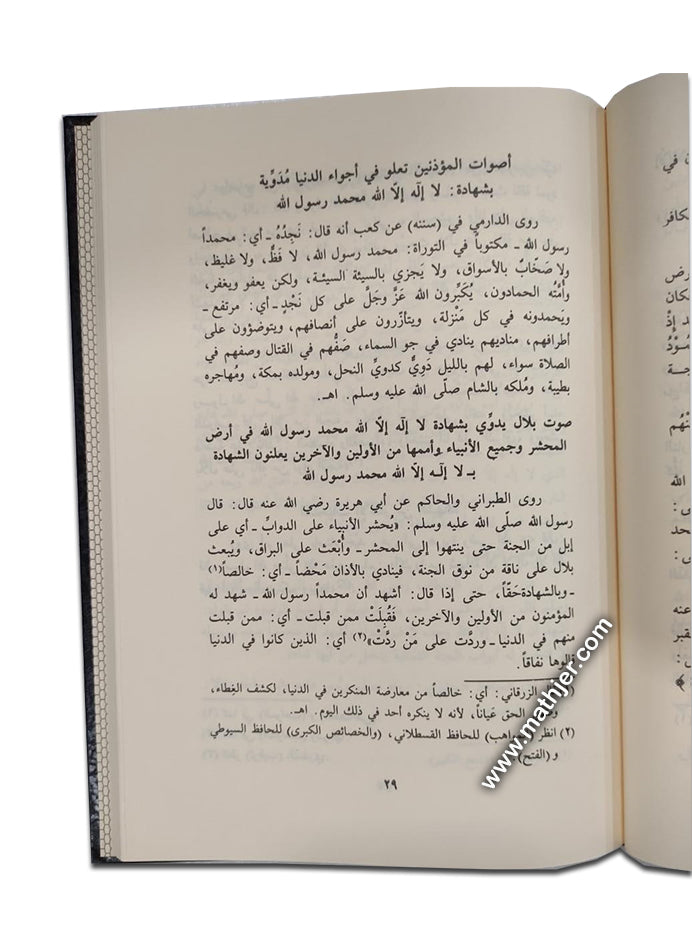 أصوات المؤذنين تعلو في أجواء الدنيا مُدَوِّية
بشهادة: لا إله إلاّ الله محمد رسول الله
روى الدارمي في (سننه) عن كعب أنه قال: نَجِدُهُ ـ أي: محمداً
رسول الله ـ مكتوباً في التوراة: محمد رسول الله، لا فَظٌّ، ولا غليظ،
ولا صَخّابٌ بالأسواق، ولا يَجزي بالسيئة السيئة، ولكن يعفو ويغفر،
وأُمَّتُه الحمادون، يُكبِّرون الله عَزَّ وجَلَّ على كل نَجْدٍ ـ أي: مرتفع ـ
ويَحمدونه في كل مَنْزلة، ويتأزّرون على أنصافهم، ويتوضؤون على
أطرافهم، مناديهم ينادي في جو السماء، صَفُّهم في القتال وصفهم في
الصلاة سواء، لهم بالليل دَوِيٌّ كدويِّ النحل، ومولده بمكة، ومُهاجره
بطيبة، ومُلكه بالشام صلّى الله عليه وسلم. اهـ.
صوت بلال يدوِّي بشهادة لا إله إلاّ الله محمد رسول الله في أرض
المحشر وجميع الأنبياء وأممها من الأولين والآخرين يعلنون الشهادة
بـ لا إلـه إلاّ الله محمد رسول الله
روى الطبراني والحاكم عن أبي هريرة رضي الله عنه قال: قال
رسول الله صلّى الله عليه وسلم: «يُحشر الأنبياء على الدوابِّ ـ أي على
إبل من الجنة حتى ينتهوا إلى المحشر ـ وأُبْعَث على البراق، ويُبعث
بلال على ناقة من نوق الجنة، فينادي بالأذان مَحْضاً ـ أي: خالصاً(١)
ـ وبالشهادة حَقّاً، حتى إذا قال: أشهد أن محمداً رسول الله ـ شهد له
المؤمنون من الأولين والآخرين، فَقُبِلَتْ ممن قبلت ـ أي: ممن قبلت
منهم في الدنيا ـ وردَّت على مَنْ ردَّتْ»(٢) أي: الذين كانوا في الدنيا
قالوها نفاقاً.
الزرقاني: أي: خالصاً من معارضة المنكرين في الدنيا، لكشف الغِطاء،
الحق عَياناً، لأنه لا ينكره أحد في ذلك اليوم. اهـ.
(٢) انظر (المواهب) للحافظ القسطلاني، (والخصائص الكبرى) للحافظ السيوطي
و (الفتح)
٢٩
www.mathjer.com